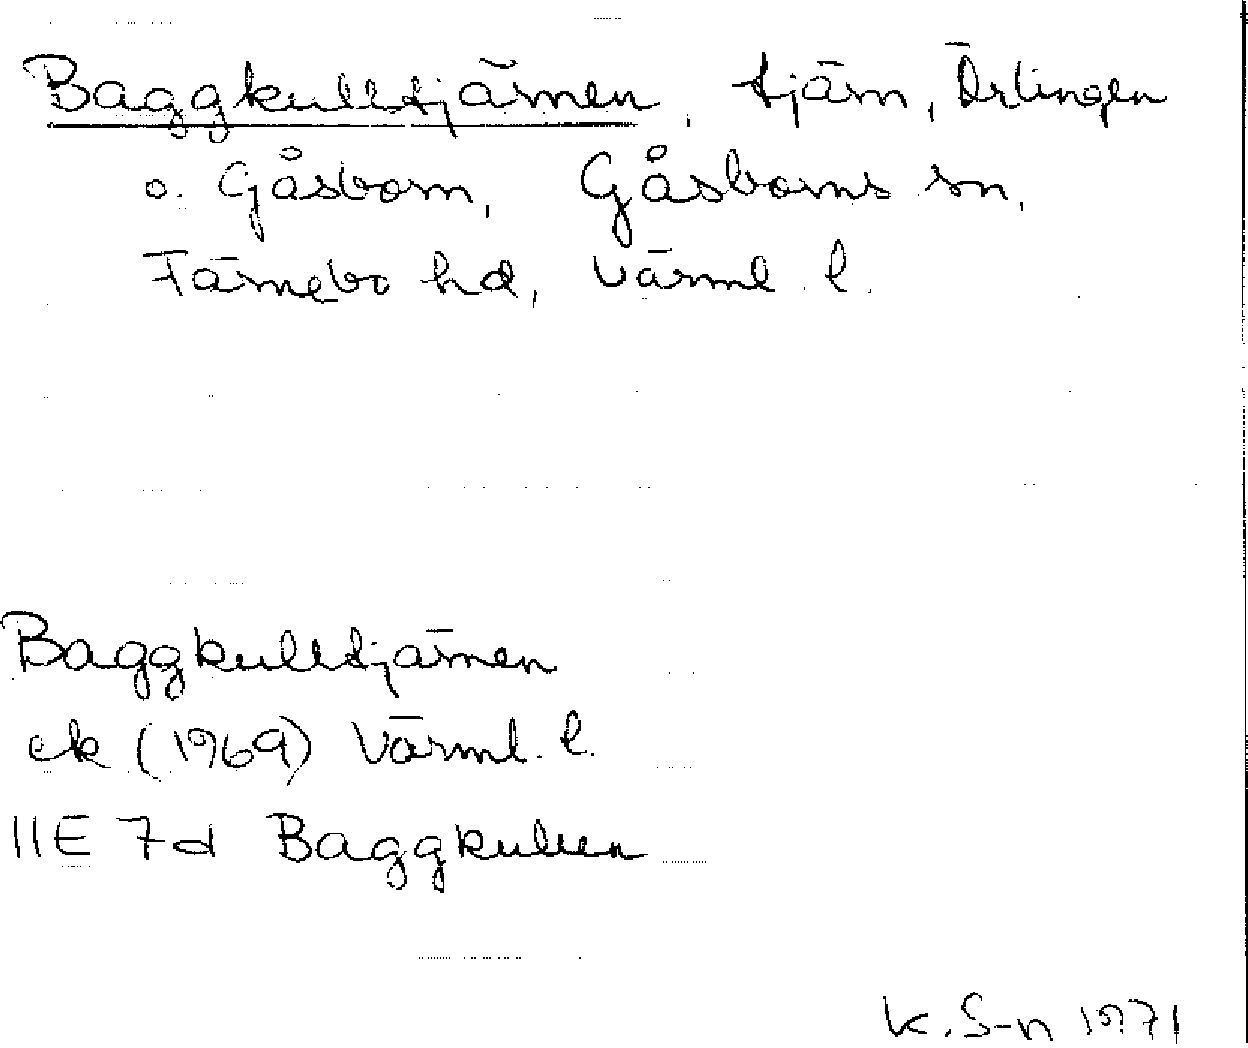 Baggkulltjärnen, tjärn, Örlingen
o. Gåsborn, Gåsborns sn,
Färnebo hd, Värml. l.
Baggkulltjärnen
ek (1969) Värml. l.
11E 7d Baggkullen
K. S-n 1971